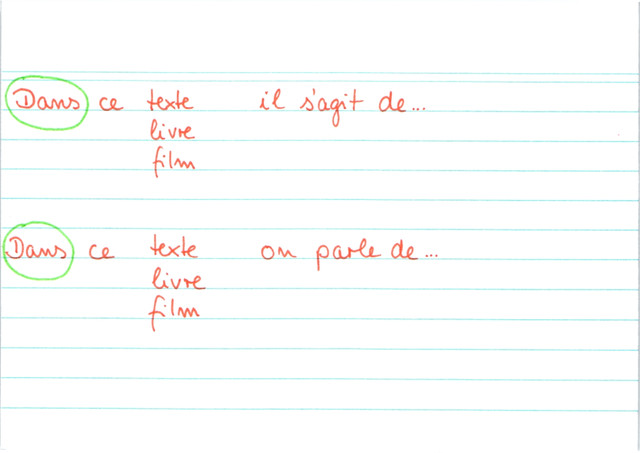 Dans ce texte il s'agit de...
livre
film
Dans ce texte on parle de...
livre
film